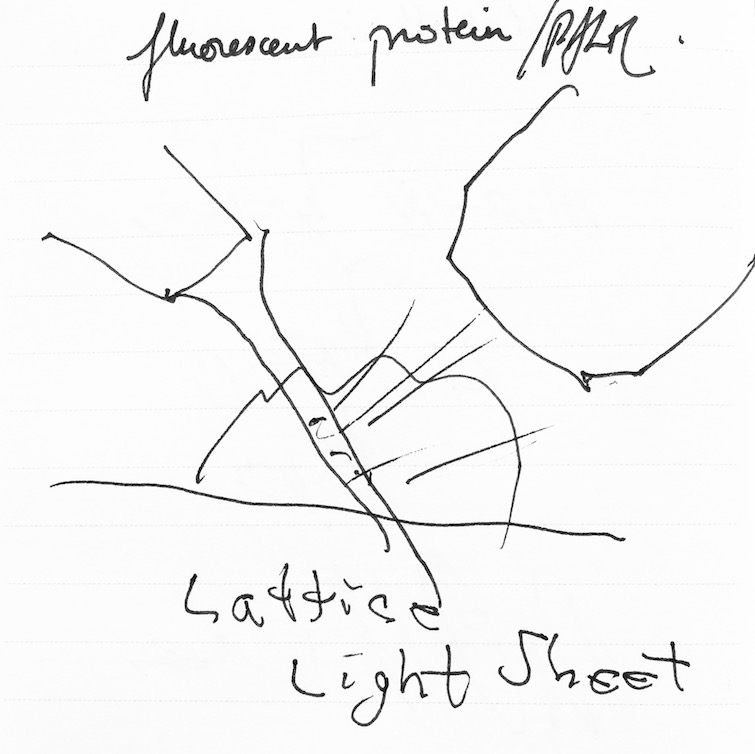 fluorescent protein /PALM.
Lattice
Light Sheet